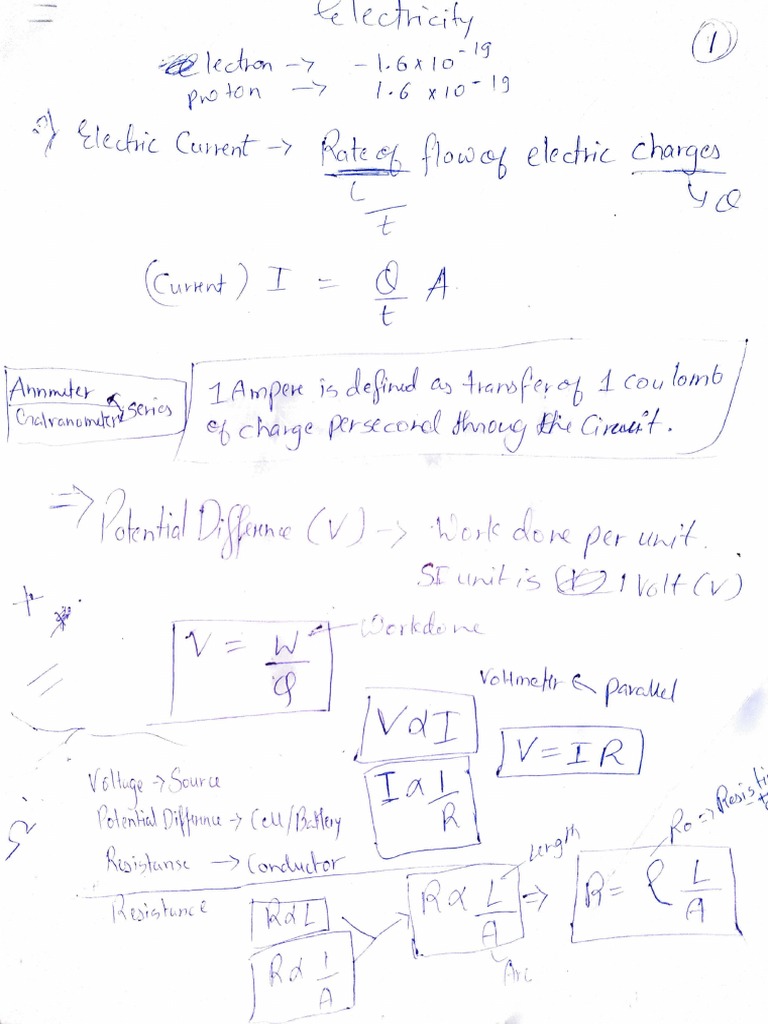 Electricity
1
electron → -1.6 x 10^-19
proton → 1.6 x 10^-19
Electric Current → Rate of flow of electric charges
t
Q
(Current) I = Q/t A
Ammeter
Galvanometer
series
1 Ampere is defined as transfer of 1 coulomb
of charge persecond through the Circuit.
⇒ Potential Difference (V) → Work done per unit.
SI unit is 1 Volt (V)
V = W/Q ← Workdone
Voltmeter ← parallel
V ∝ I
V = I R
I ∝ 1/R
Voltage → Source
Potential Difference → Cell/Battery
Resistanse → Conductor
Resistance
R ∝ L
R ∝ 1/A
R ∝ L/A ⇒ R = ρ L/A
Length
Ro ⇒ Resisti